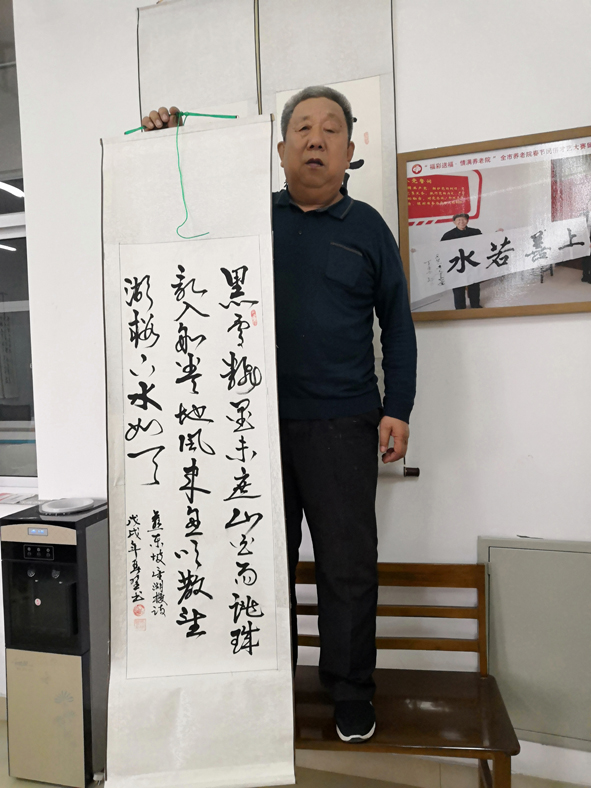 黑雲翻墨未遮山白雨跳珠
乱入船卷地風来忽吹散望
湖楼下水如天
蘇东坡望湖楼诗
戊戌年书
"福彩送福·情满养老院"全市养老院春节
上善若水